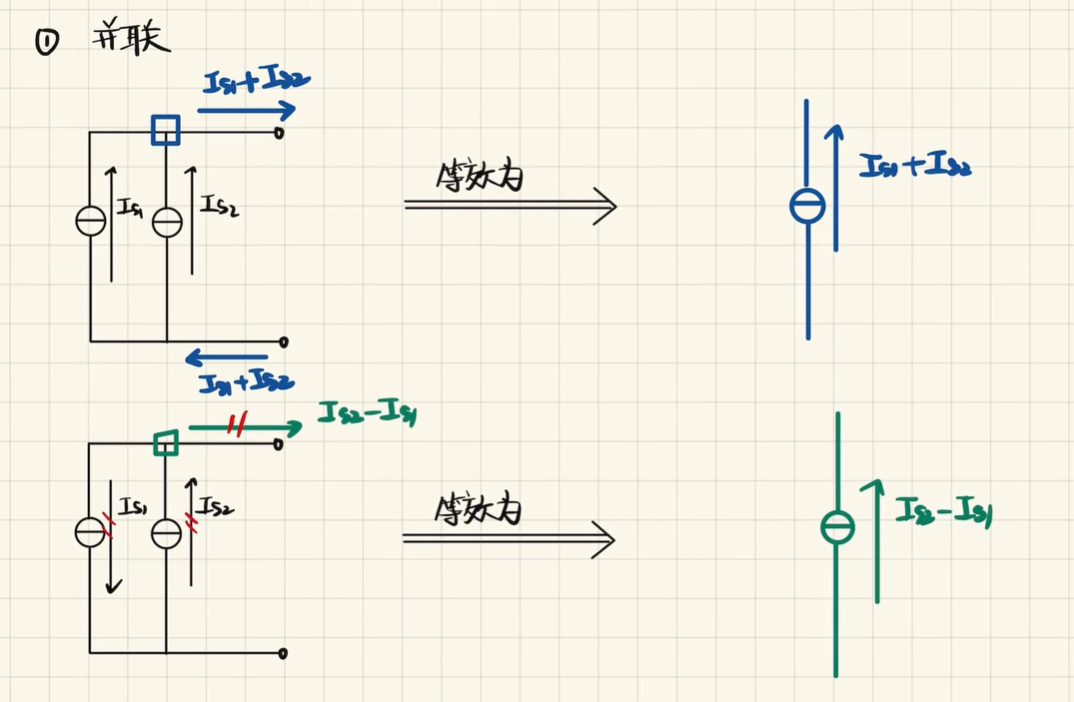 ① 并联
Is1+Is2
Is1
Is2
等效为
Is1+Is2
Is1+Is2
Is2-Is1
Is1
Is2
等效为
Is2-Is1